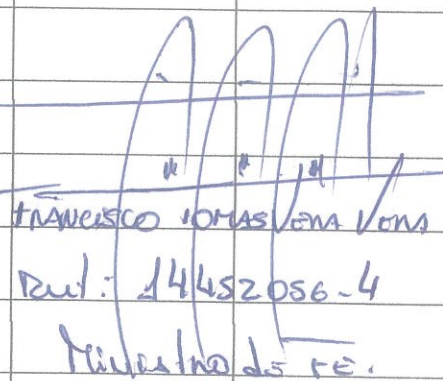 FRANCISCO TOMAS VERA VERA
Rut: 14452056-4
Ministro de FE.